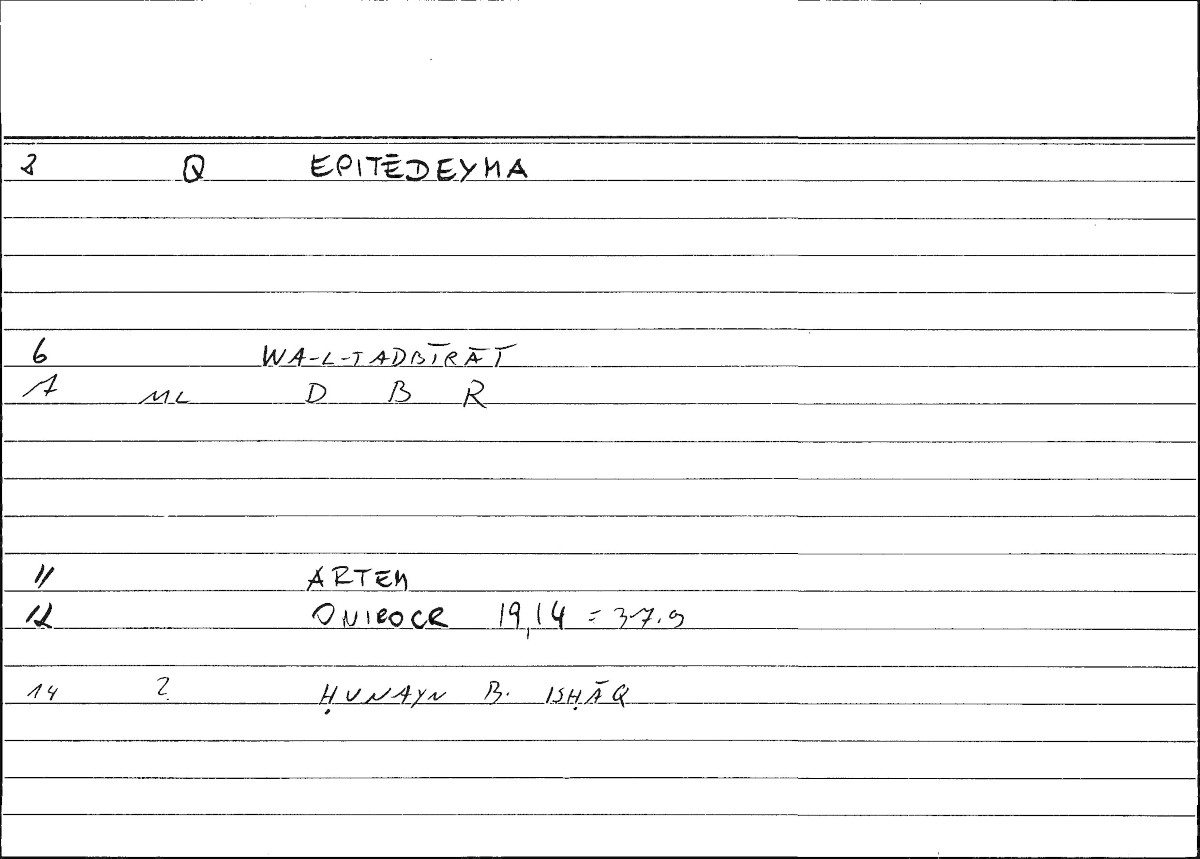 8 Q EPITĒDEYMA
6 WA-L-TADBĪRĀT
7 ML D B R
11 ARTEM
12 ONIROCR 19,14 = 37.9
14 2 ḤUNAYN B. ISḤĀQ